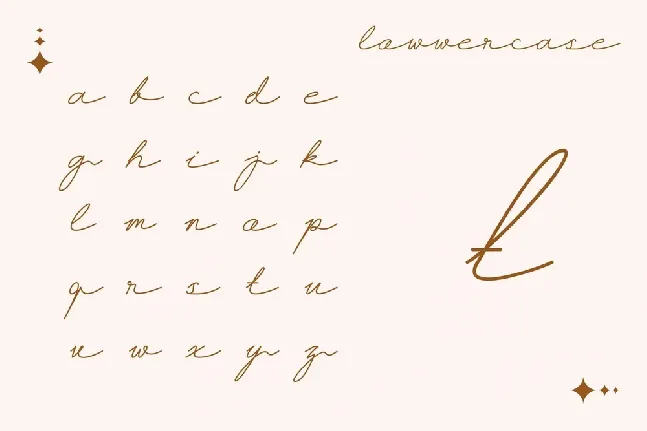 lowwercase
a b c d e
g h i j k
l m n o p
q r s t u
v w x y z
t